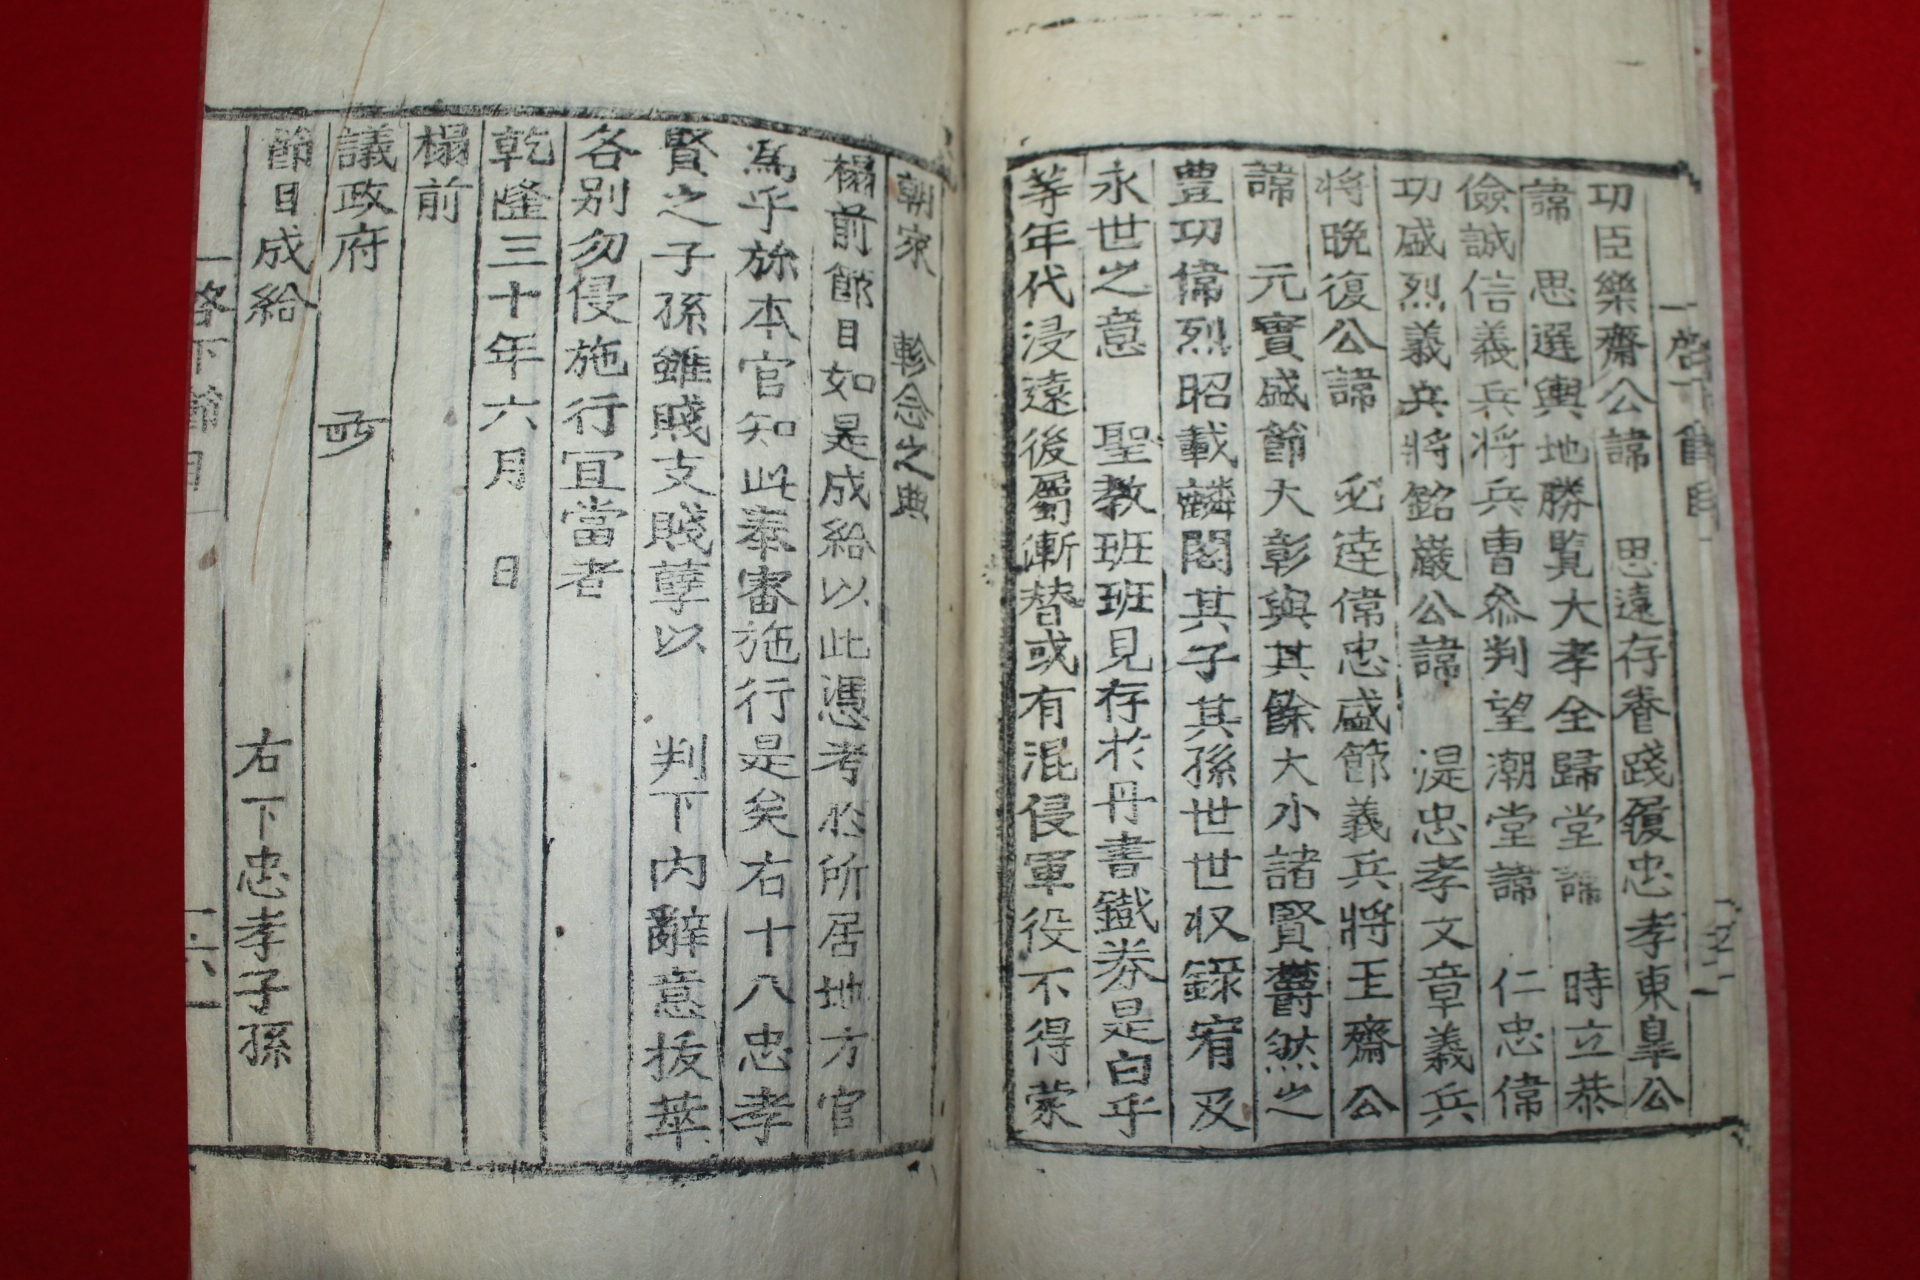 功臣樂齋公諱 思遠存養踐履忠孝東皐公
諱 思選輿地勝覧大孝全歸堂諱 時立恭
儉誠信義兵将兵曹叅判望潮堂諱 仁忠偉
功盛烈義兵将銘巖公諱 湜忠孝文章義兵
将晩復公諱 必逹偉忠盛節義兵將王齋公
諱 元實盛節大彰與其餘大小諸賢欝然之
豊功偉烈昭載麟閣其子其孫世世収錄宥及
永世之意 聖教班班見存於丹書鐵券是白乎
等年代浸遠後屬漸替或有混侵軍役不得蒙
朝家 軫念之典
榻前節目如是成給以此憑考於所居地方官
爲乎旀本官知此泰審施行是矣右十八忠孝
賢之子孫雖賤支賤孽以 判下内辭意抜萃
各别勿侵施行冝當者
乾隆三十年六月 日
榻前
議政府
節目成給 右下忠孝子孫